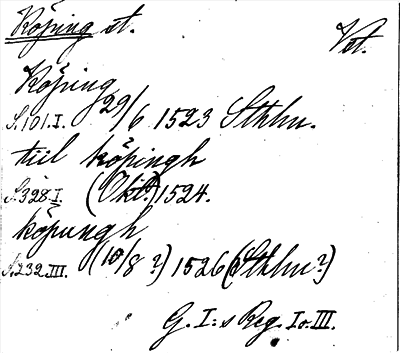 Köping st. Vst.
Köping
S. 101. I. 29/6 1523 Sthlm.
tiil köpingh
S. 328. I. (Okt.?) 1524.
köpungh
S. 232. III. (10/8 ?) 1526 (Sthlm?)
G. I:s Reg. I o. III.